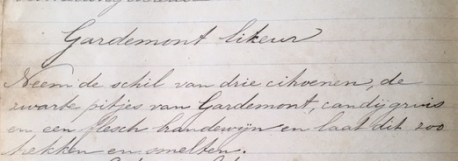 Gardemont likeur
Neem de schil van drie citroenen, de
zwarte pitjes van Gardemont, candijgruis
en een flesch brandewijn en laat dit zoo
trekken en smelten.